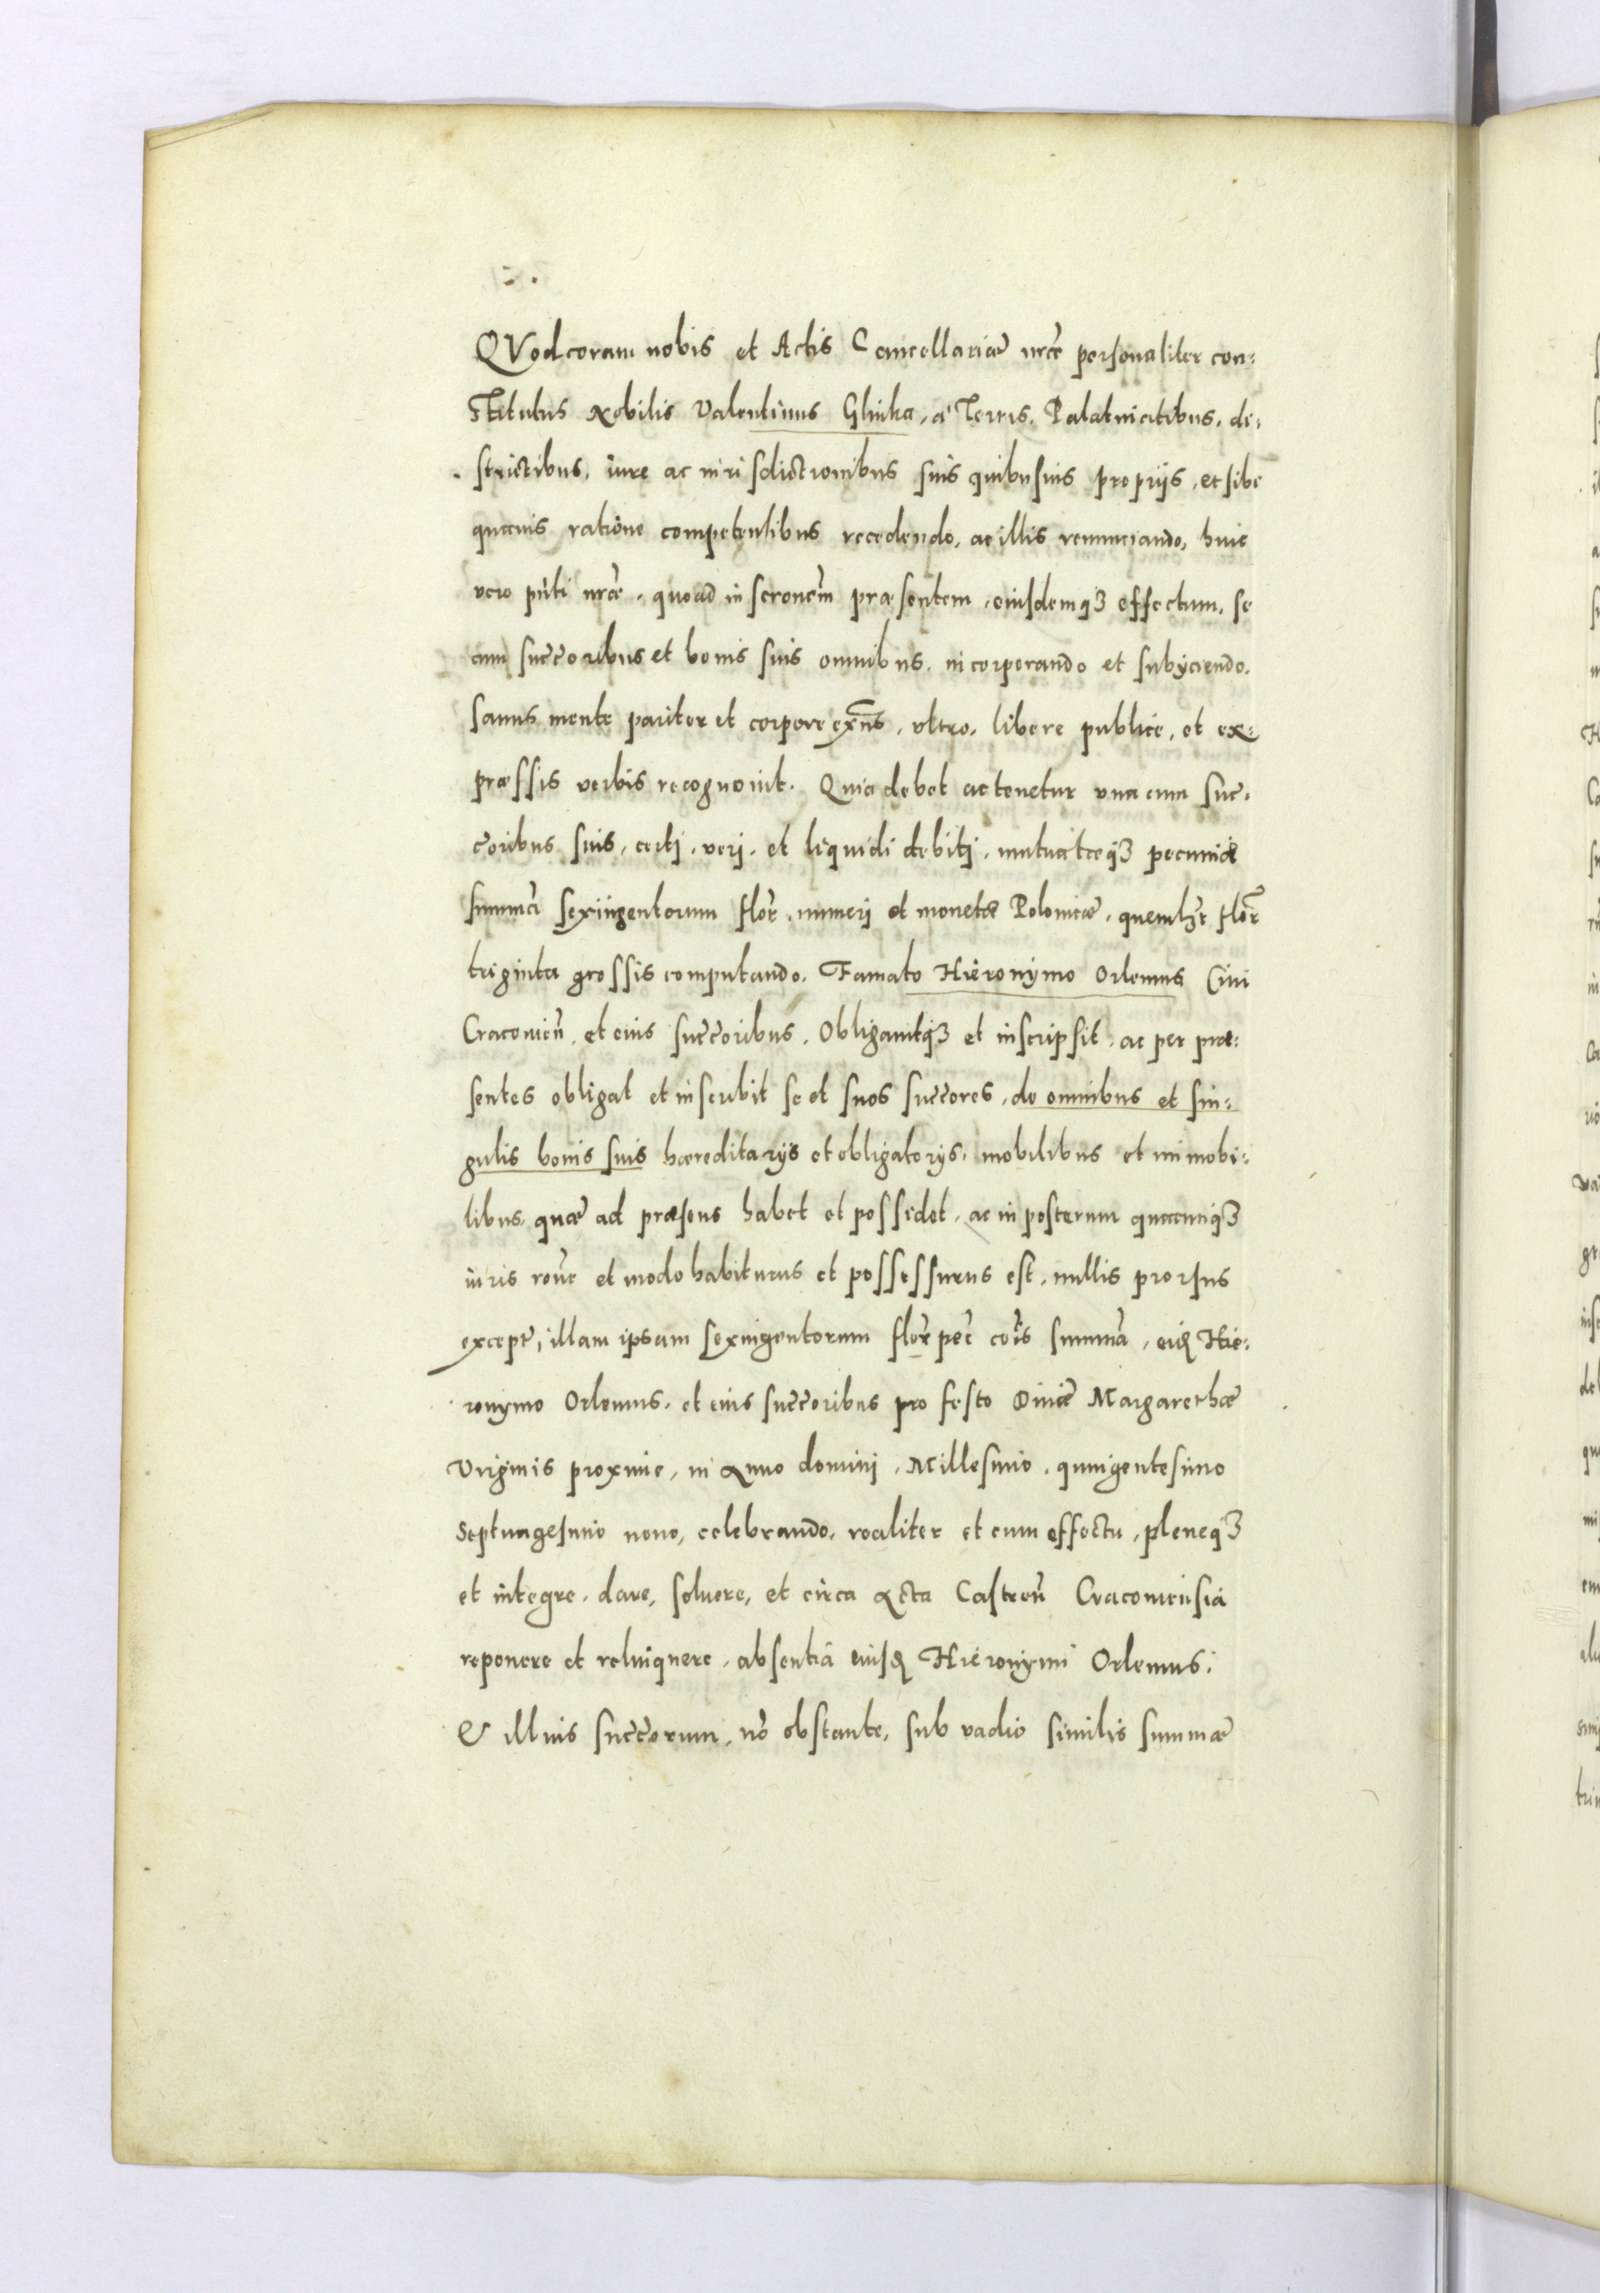 QVod coram nobis et Actis Cancellariæ nrãe personaliter con:
stitutus Nobilis Valentinus Glinka, a Terris, Palatinatibus, di:
strictibus, iure ac iurisdictionibus suis quibusuis proprijs, et sibi
quauis ratione competentibus recedendo, ac illis renunciando, huic
vero pnti nrãe, quoad inscronem præsentem, eiusdemq3 effectum, se
cum succoribus et bonis suis omnibus, incorporando et subijciendo.
sanus mente pariter et corpore exñs, vltro, libere publice, et ex:
præssis verbis recognouit. Quia debet ac tenetur vna cum suc:
coribus suis, certj, verj, et liquidi debitj, mutuatæq3 pecuniæ
summã sexingentorum flor, numerj et monetæ Polonicæ, quemlꝫt flor
triginta grossis computando, Famato Hieronymo Orlemus Ciui
Cracovieñ, et eius succoribus, Obligauitq3 et inscripsit, ac per præ:
sentes obligat et inscribit se et suos succores, de omnibus et sin:
gulis bonis suis hæreditarijs et obligatorijs, mobilibus et immobi:
libus, quæ ad præsens habet et possidet, ac in posterum quacunq3
iuris rone et modo habiturus et possessurus est, nullis prorsus
except, illam ipsam sexingentorum flor pec cois summã, eid Hie:
ronymo Orlemus, et eius succoribus pro festo Diuæ Margarethæ
Virginis proxime, in Anno dominj, Millesimo, quingentesimo
septuagesimo nono, celebrando, realiter et cum effectu, pleneq3
et integre, dare, soluere, et circa Acta Castreñ Cracoviensia
reponere et relinquere, absentiâ eiusd Hieronymi Orlemus,
& illius succorum, nõ obstante, sub vadio similis summæ